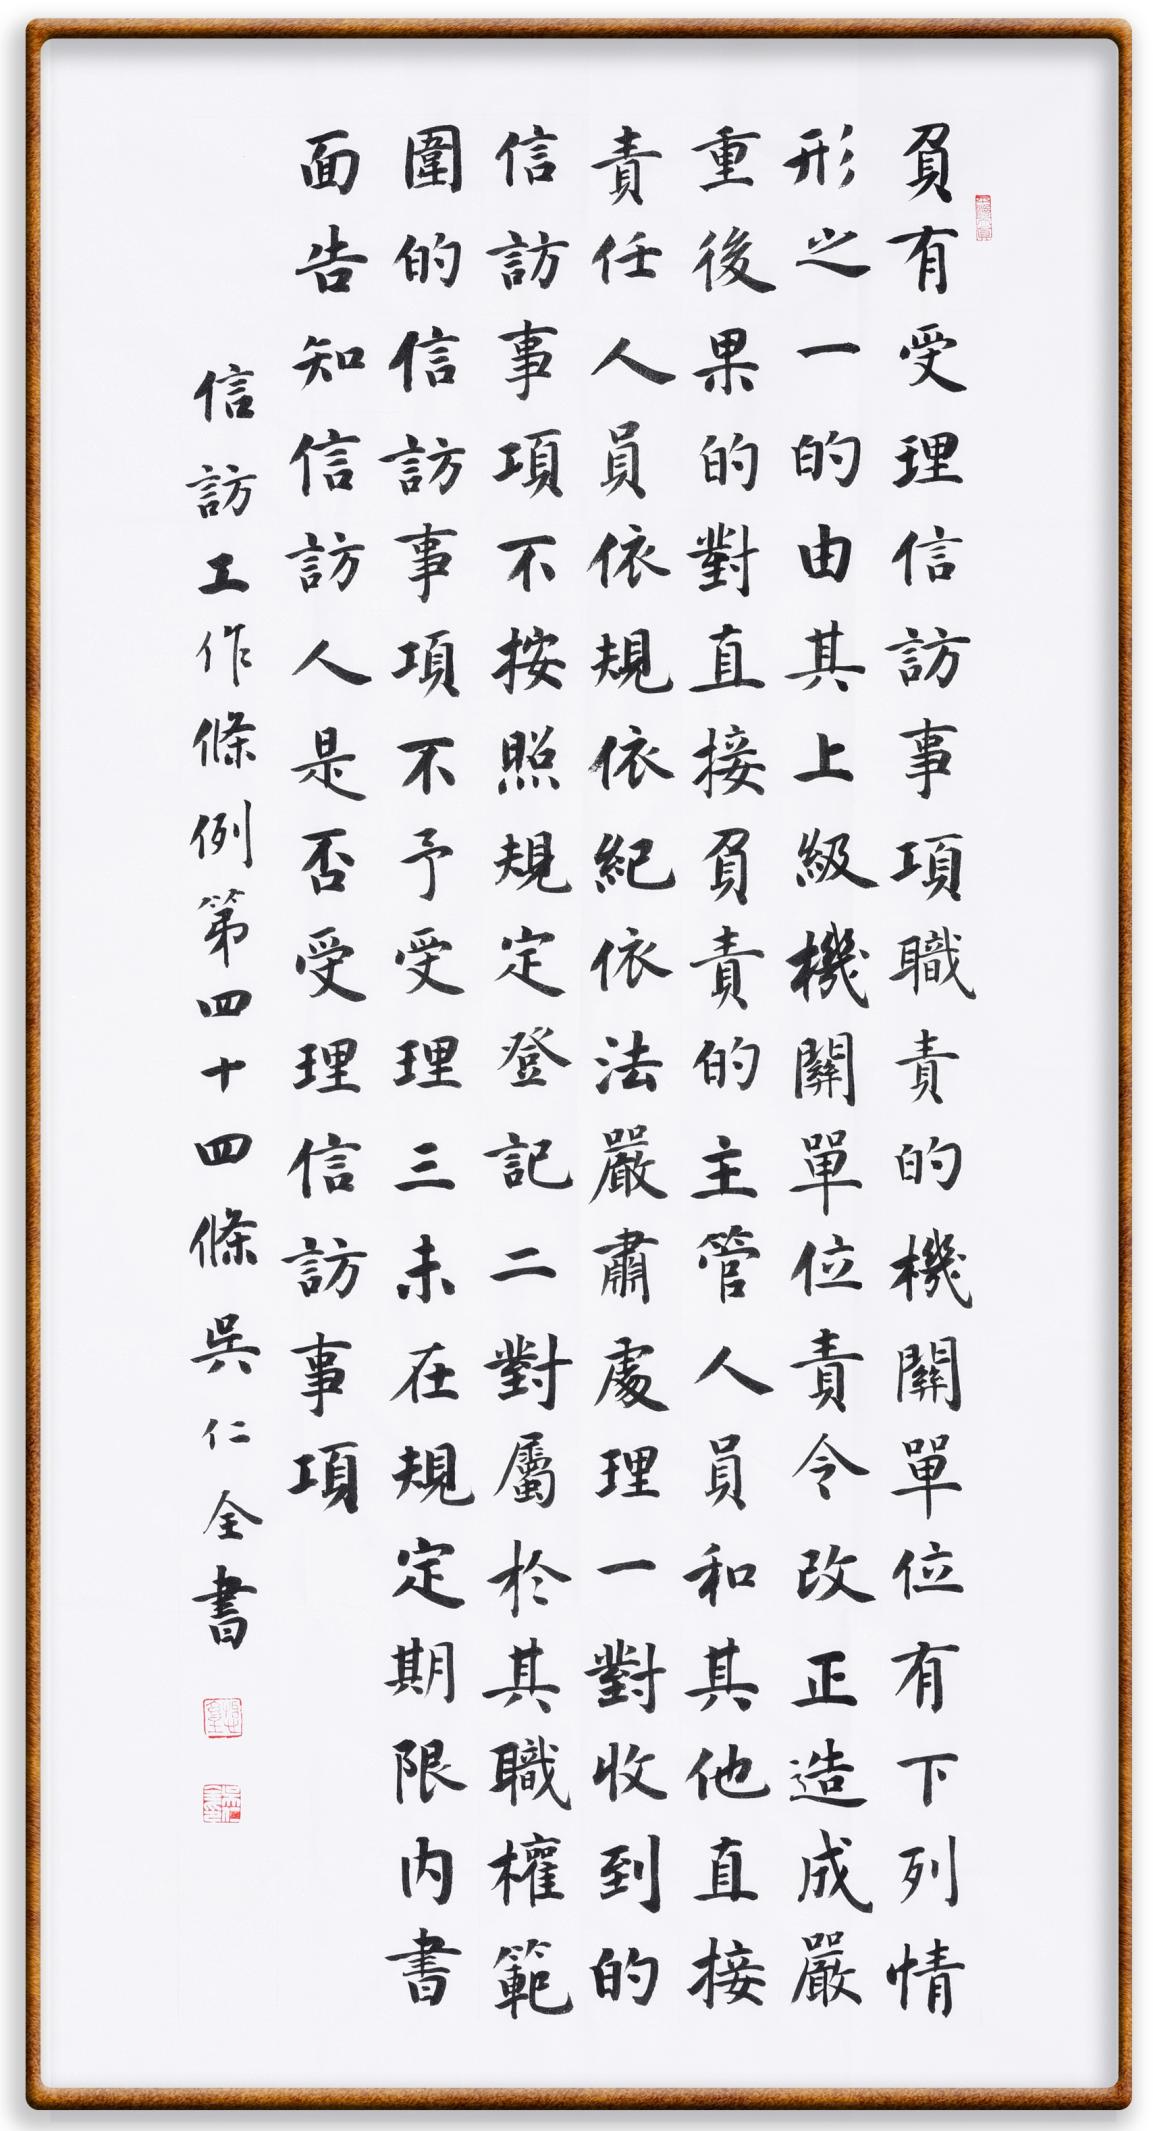 負有受理信訪事項職責的機關單位有下列情
形之一的由其上級機關單位責令改正造成嚴
重後果的對直接負責的主管人員和其他直接
責任人員依規依紀依法嚴肅處理一對收到的
信訪事項不按照規定登記二對屬於其職權範
圍的信訪事項不予受理三未在規定期限内書
面告知信訪人是否受理信訪事項
信訪工作條例第四十四條吳仁全書